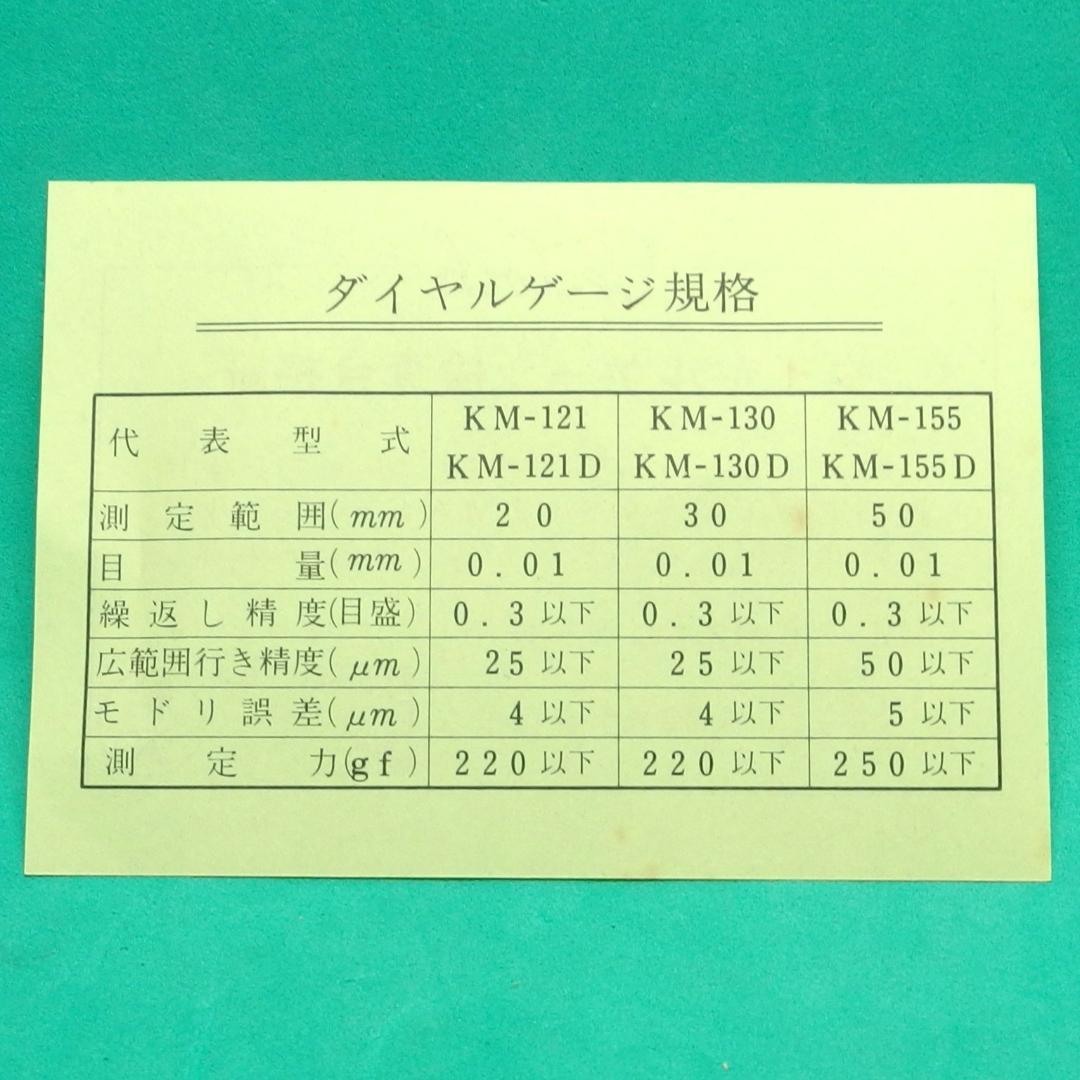 ダイヤルゲージ規格
代表型式 KM-121 KM-130 KM-155
KM-121D KM-130D KM-155D
測定範囲(mm) 20 30 50
目量(mm) 0.01 0.01 0.01
繰返し精度(目盛) 0.3以下 0.3以下 0.3以下
広範囲行き精度(μm) 25以下 25以下 50以下
モドリ誤差(μm) 4以下 4以下 5以下
測定力(gf) 220以下 220以下 250以下